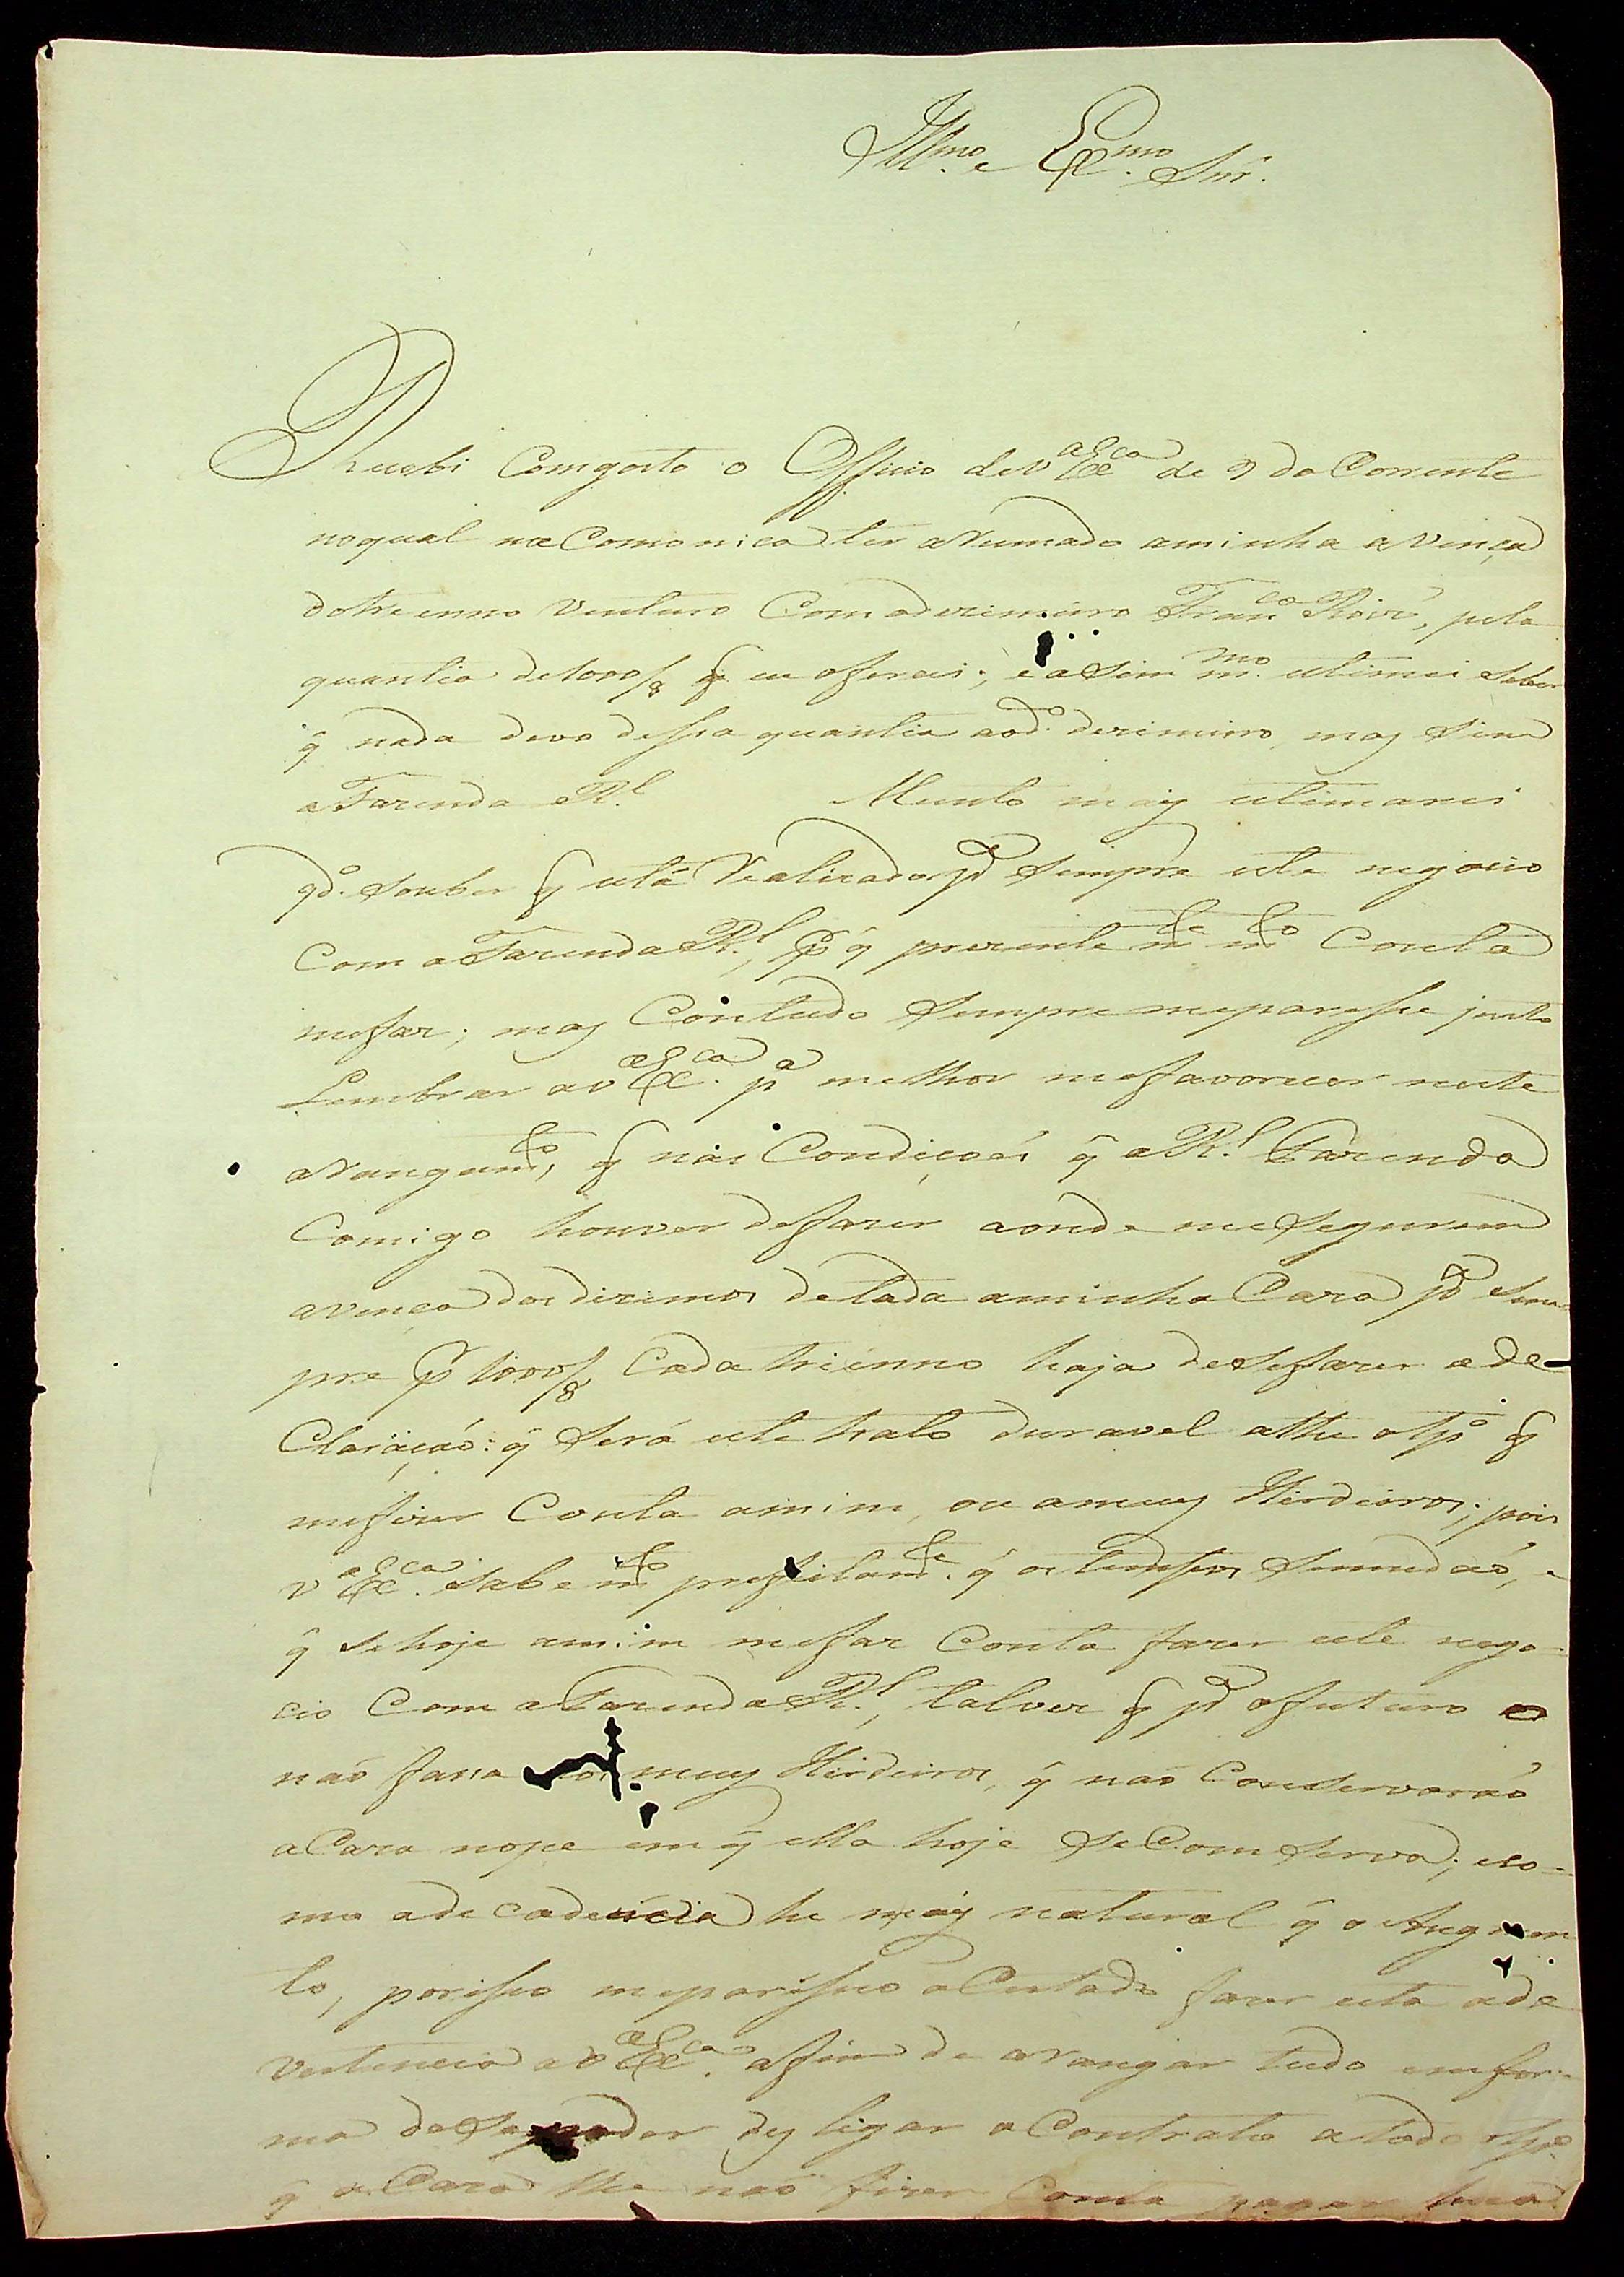 Illmo. e Exmo. Snr.
Recebi Com gosto o Officio de V Exca de 9 do Corrente
no qual me Comonica ter arumado aminha avença
do tre enno venturo Com o dizimeiro Franco Roiz, pela
quantia de 1000/8 q eu ofereci; e asim mo. estimei Saber
q̂ nada devo dessa quantia aod.o dizimeiro, mas Sim
a Fazenda Rl. Muito mais estimarei
qdo. Souber q está Realizado pa Sempre este negocio
Com a Fazenda Rl., pr q̂ prezente mte mto Conta
mefaz; mas Contudo Sempre meparesse justo
Lembrar a V Exca. pa melhor mefavorecer neste
aranjamto, q nas Condiçoés q̂ a Rl. Fazenda
Comigo houver defazer aonde me Segurem
avença dos dizimos detoda aminha Caza pa Sem-
pre pr 1000/8 Cada triénno haja deSefazer ade-
Claraçaó: q̂ Será este trato duravel athe otpo q
mefizer Conta amim, ou ameus Hirdeiros; pois
V Exca. Sabe mto prefeitamte. q̂ os tempos Semudaó, e
q̂ Sehoje amim mefaz Conta fazer este nego-
cio Com a Fazenda Rl., talvez q pa ofuturo o
naó fassa aos meus Hirdeiros, q̂ naó Conservaráó
aCaza nope em q̂ ella hoje Se Com Serva; eco-
mo a de cadencia he mais natural q̂ o Augmen
to, porisso meparesseo aCertado fazer esta ade
vertencia a V Exca. afim de aranjar tudo emfor-
ma deSe poder des ligar o Contrato atodo otpo.
q̂ a Caza lhe naó fizer Conta pagar